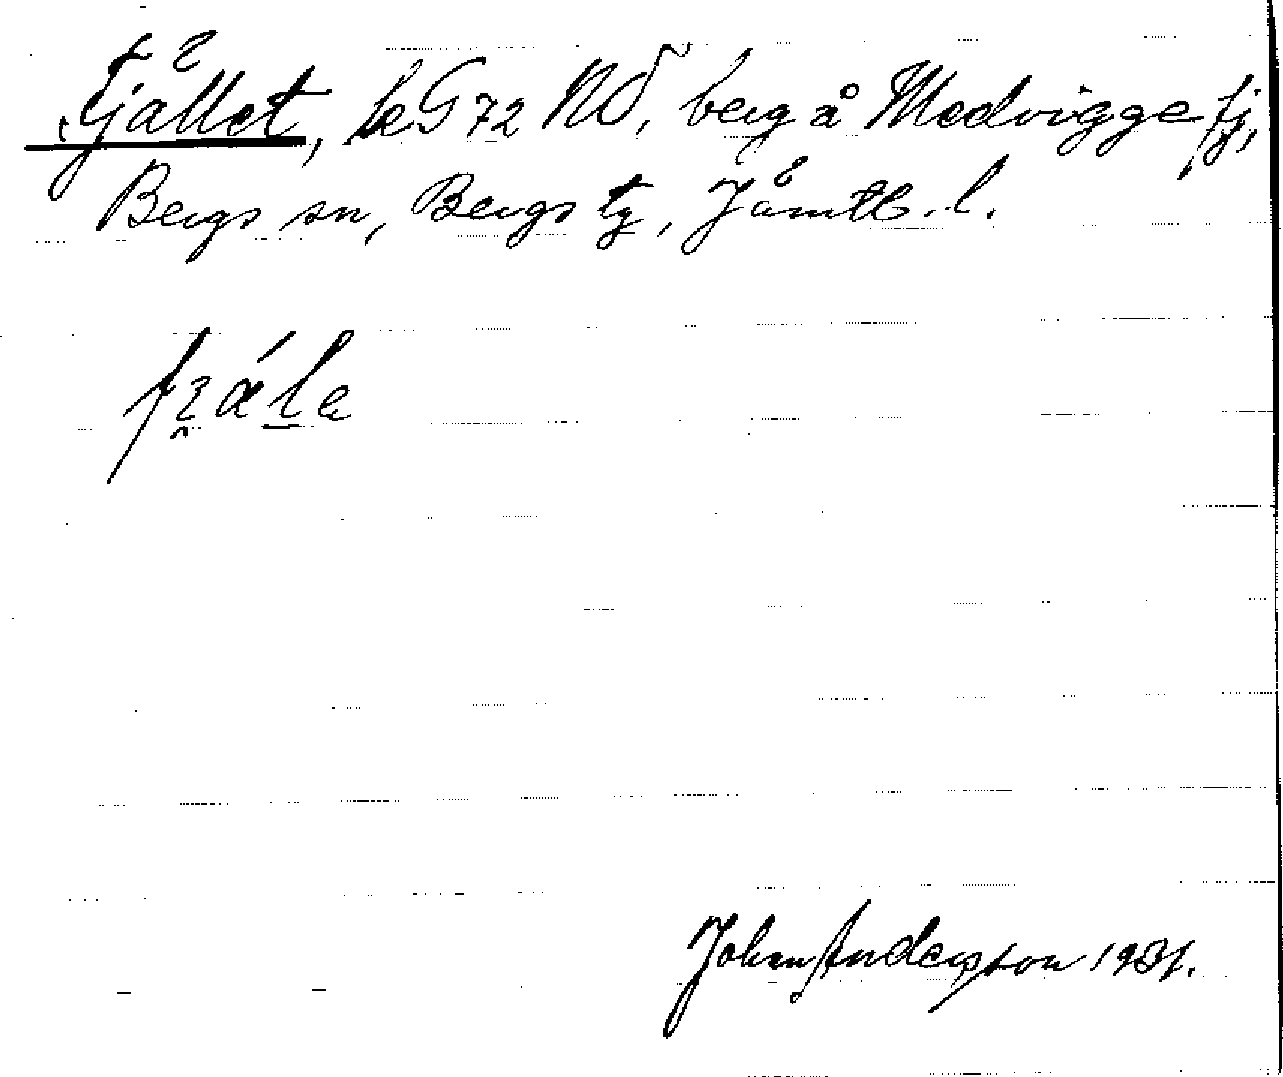 Fjället, k G 72 NV, berg å Medvigge fj,
Bergs sn, Bergs tg, Jämtl. l.
Johan Andersson 1931.